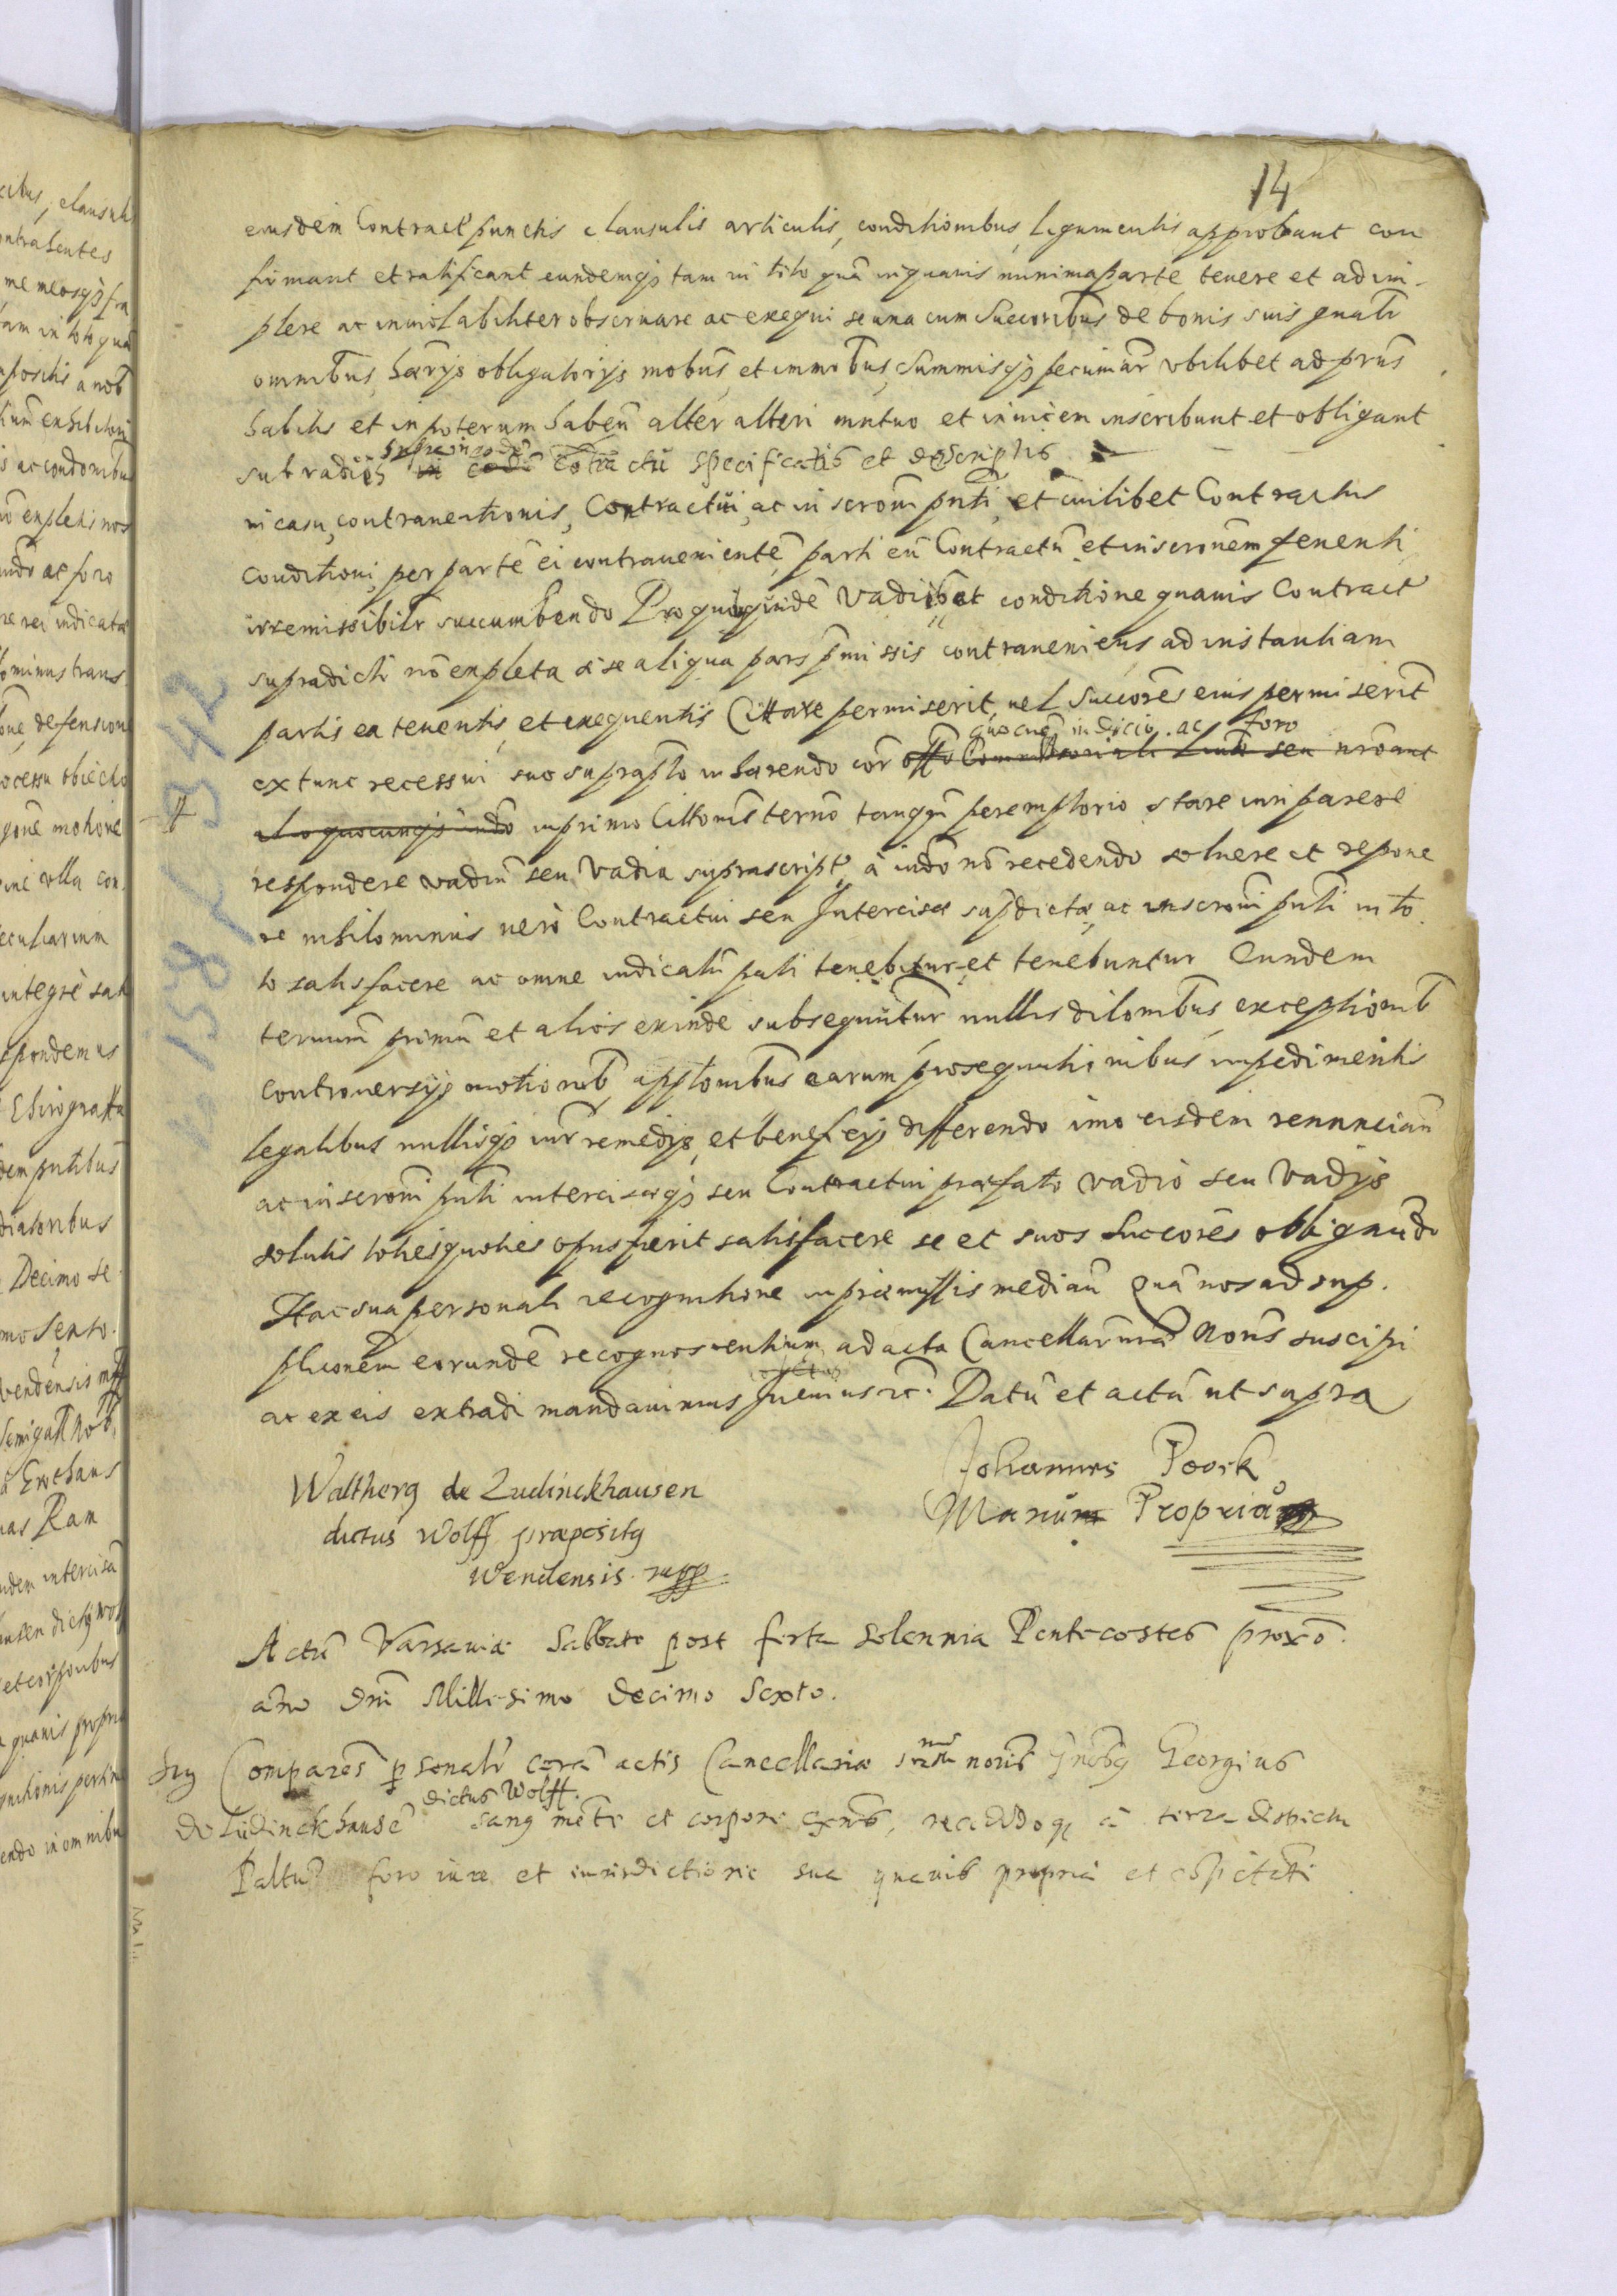 14
eiusdem Contract punctis clausulis articulis, conditionibus, ligumentis approbant con
firmant et ratificant eundemqȝ tam in toto quā in quavis minima parte tenere et adim-
plere ac inviolabiliter observare ac exequi se una cum Succoribus de bonis suis gnalr
omnibus, hærijs obligatorijs mobus et immobus, Summisqȝ pecuniar ubilibet ad prns
habitis et in poterum haben alter alteri mutuo et invicem inscribunt et obligant
supra in eodē
sub vadijs in eodē Cotractū specificatis et descriptis
in casu contraventionis, Contractui, ac inscroni pnti et cuilibet Contractus
Conditioni per partē ei contravenientē parti eū Contractū et inscronem tenenti
irremissibilr succumbendo Pro quo quidē Vadio et conditione quavis Contract
supradicti nō expleta si se aliqua pars pmissis contraveniens ad instantiam
partis ea tenentis et exequentis Cittare permiserit, vel Succores eius permiserit
quocunq indicio ac foro
extunc recessui suo suprapto inhærendo cor offo Commissoriali
alio quocunqȝ indo in primo Cittonis terno tanqm peremptorio stare iuri parere
respondere vadiū seu Vadia suprascript, à indo nō recedendo solvere et repone
re nihilominus verò Contractui seu Intercisæ supdictæ, ac inscroni pnti in to
to satisfacere ac omne indicatū pati tenebitur et tenebuntur Eundem
terminum primū et alios exinde subsequntur nullis dilonibus, exceptionib
controversijs motionib appltonibus earum prosequutionibus impedimentis
legalibus nullisqȝ iur remedijs, et beneficijs differendo imo eisdem renuncian
ac inscroni pnti intercisæqȝ seu Contractui præfato vadio seu Vadijs
solutis toties quoties opus fuerit satisfacere se et suos Succores obligando
Hac sua personali recognitione in præmissis median Quā nos ad sup.
pliconem eorundē recognoscentium, ad acta Cancellar nræ Noris suscipi
ac ex eis extradi mandavimus Datū et actū ut supra
Waltherg de Ludinckhausen
dictus Wolff præpositg
Wendensis mpp
Johannes Poork
Manum Propria
Actū Varsaviæ Sabbato post festa solennia Pentecostes proxo.
ano Dni Millesimo Decimo Sexto.
Comparēs psonalr corā actis Cancellariæ noris Gnosg Georgius
dictus Wolff.
de Lüdinckhausē sang mēte et corpore exns, recedēdoqȝ à terra districtu
Palatu foro iure et iurisdictione sua quavis propria et cōpetēti